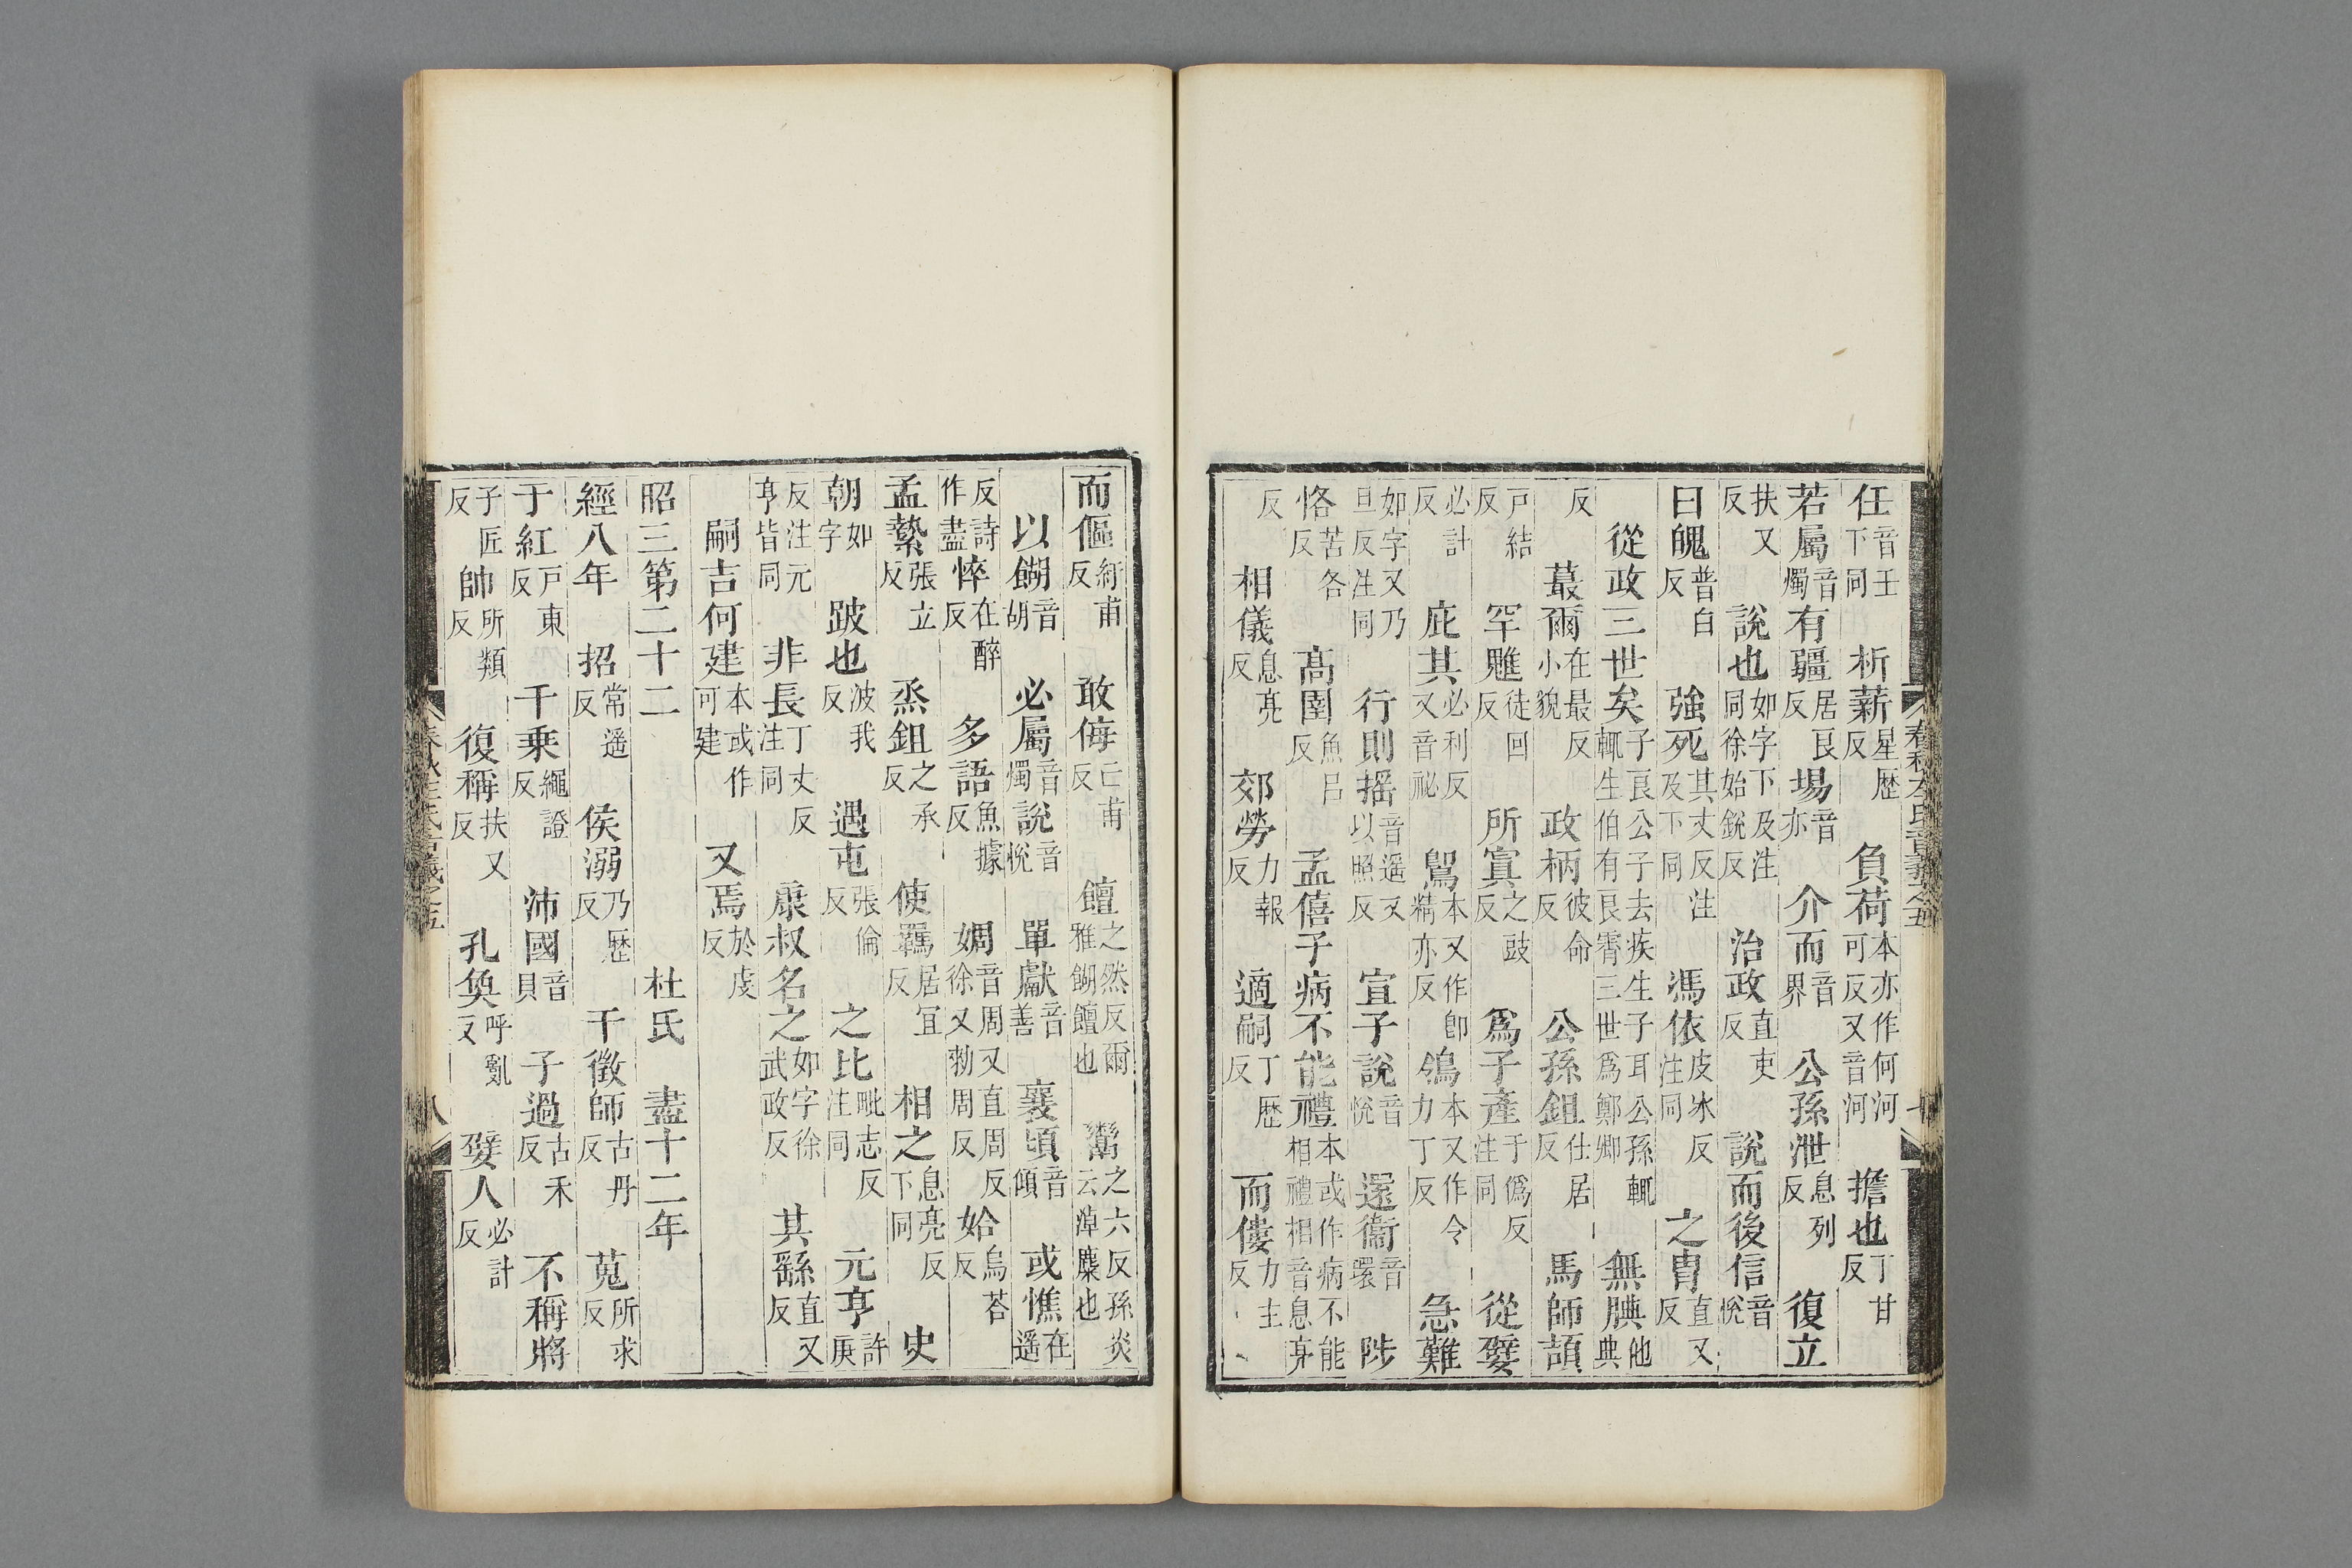 任音壬下同 析薪星歷反 負荷本亦作何河可反又音河 擔也丁甘反
若屬音燭 有疆居良反 埸音亦 介而音界 公孫泄息列反 復立
扶又反 說也如字下及注同徐始銳反 治政直吏反 說而後信音悅
曰魄普白反 強死其丈反注及下同 馮依皮冰反注同 之冑直又反
從政三世矣子良公子去疾生子耳公孫輒輒生伯有良霄三世爲鄭卿 無腆他典
反 蕞爾在最反小貌 政柄彼命反 公孫鉏仕居反 馬師頡
戸結反 罕魋徒回反 所寘之豉反 爲子產于僞反注同 從嬖
必計反 庇其必利反又音祕 䳭本又作卽精亦反 鴒本又作令力丁反 急難
如字又乃旦反注同 行則搖音遥又以照反 宣子說音悅 還衞音環 陟
恪苦各反 高圉魚呂反 孟僖子病不能禮本或作病不能相禮相音息亮
反 相儀息亮反 郊勞力報反 適嗣丁歷反 而僂力主反
春秋左氏音義之五
而傴紆甫反 敢侮亡甫反 饘之然反爾雅餬饘也 鬻之六反孫炎云淖糜也
以餬音胡 必屬音燭 說音悅 單獻音善 襄頃音傾 或憔在遥
反詩作盡 悴在醉反 多語魚據反 婤音周又直周反徐又勑周反 姶烏荅反
孟縶張立反 烝鉏之承反 使羈居宜反 相之息亮反下同 史
朝如字 跛也波我反 遇屯張倫反 之比毗志反注同 元亨許庚
反注元亨皆同 非長丁丈反注同 康叔名之如字徐武政反 其繇直又反
嗣吉何建本或作可建 又焉於虔反
昭三第二十二 杜氏 盡十二年
經八年 招常遥反 侯溺乃歷反 干徵師古丹反 蒐所求反
于紅戸東反 千乗繩證反 沛國音貝 子過古禾反 不稱將
子匠反 帥所類反 復稱扶又反 孔奐呼亂反 嬖人必計反
春秋左氏音義之五 八